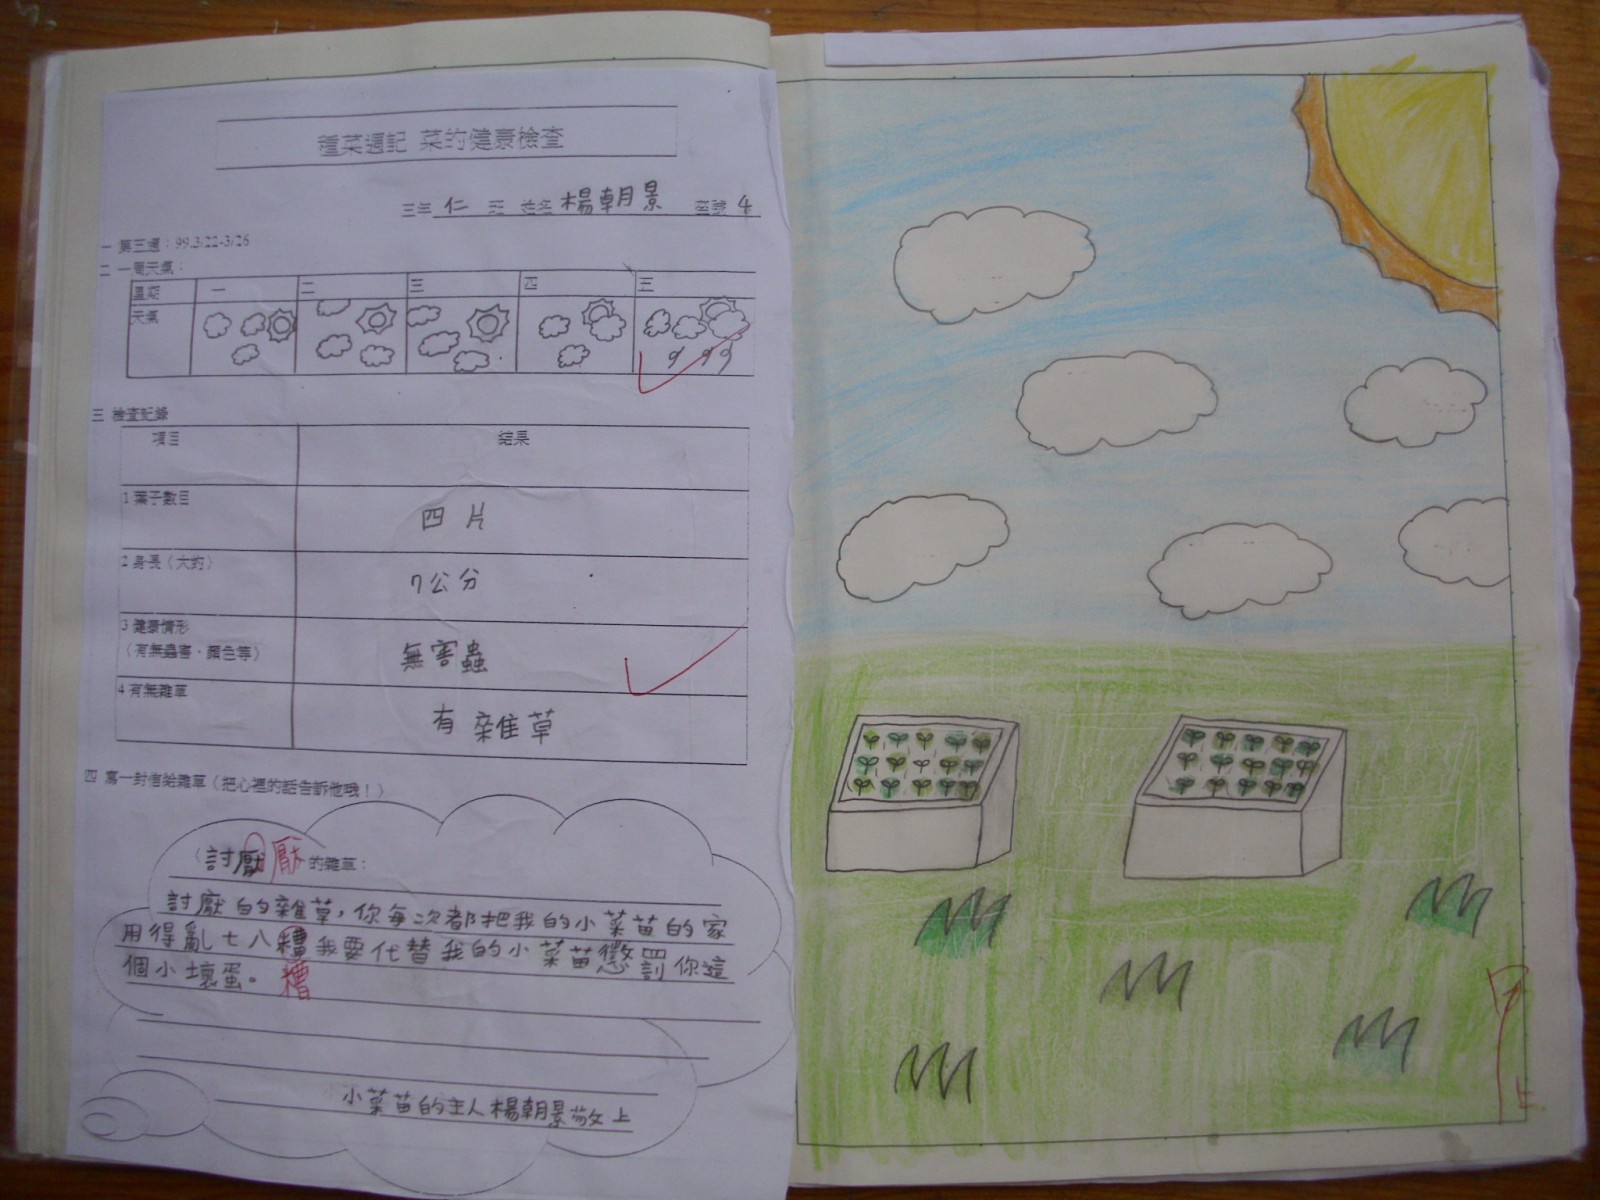 種菜週記 菜的健康檢查
三年 仁 班 姓名 楊朝景 座號 4
一 第三週：99.3/22-3/26
二 一周天氣：
星期 一 二 三 四 五
天氣
三 檢查記錄
項目 結果
1 葉子數目 四片
2 身長（大約） 7公分
3 健康情形 無害蟲
（有無蟲害、顏色等）
4 有無雜草 有雜草
四 寫一封信給雜草（把心裡的話告訴他哦！）
（討厭 厭 的雜草：
討厭的雜草，你每次都把我的小菜苗的家
用得亂七八糟我要代替我的小菜苗懲罰你這
個小壞蛋。 糟
小菜苗的主人楊朝景敬上
甲
上